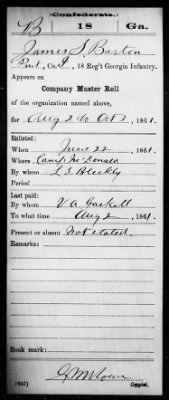 Confederate.
B 18 Ga.
James S. Barton
Pvt, Co. I, 18 Reg't Georgia Infantry.
Appears on
Company Muster Roll
of the organization named above,
for Aug 2 to Oct 2, 1861.
Enlisted:
When June 22, 1861.
Where Camp McDonald
By whom L. S. Bleckly
Period
Last paid:
By whom V A Gaskill
To what time Aug 2, 1861.
Present or absent Not stated.
Remarks:
Book mark:
(642)
Copyist.